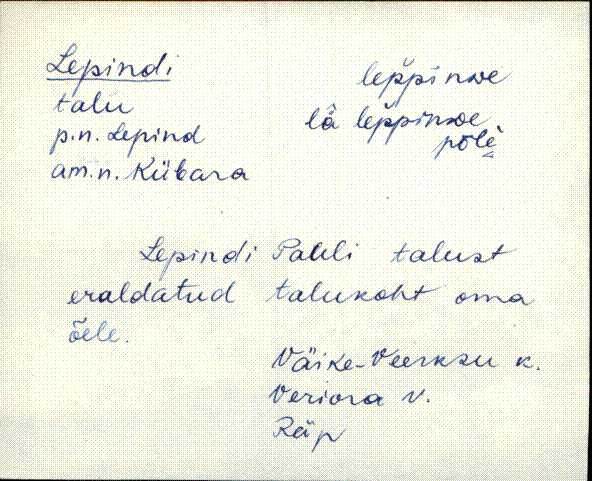 Lepindi
talu
p.n. Lepind
am.n. Kübara
lep̆pinɒe
lä lep̆pinɒe
põlè
Lepindi Pauli talust
eraldatud talukoht oma
õele.
Väike-Veerksu k.
Veriora v.
Räp